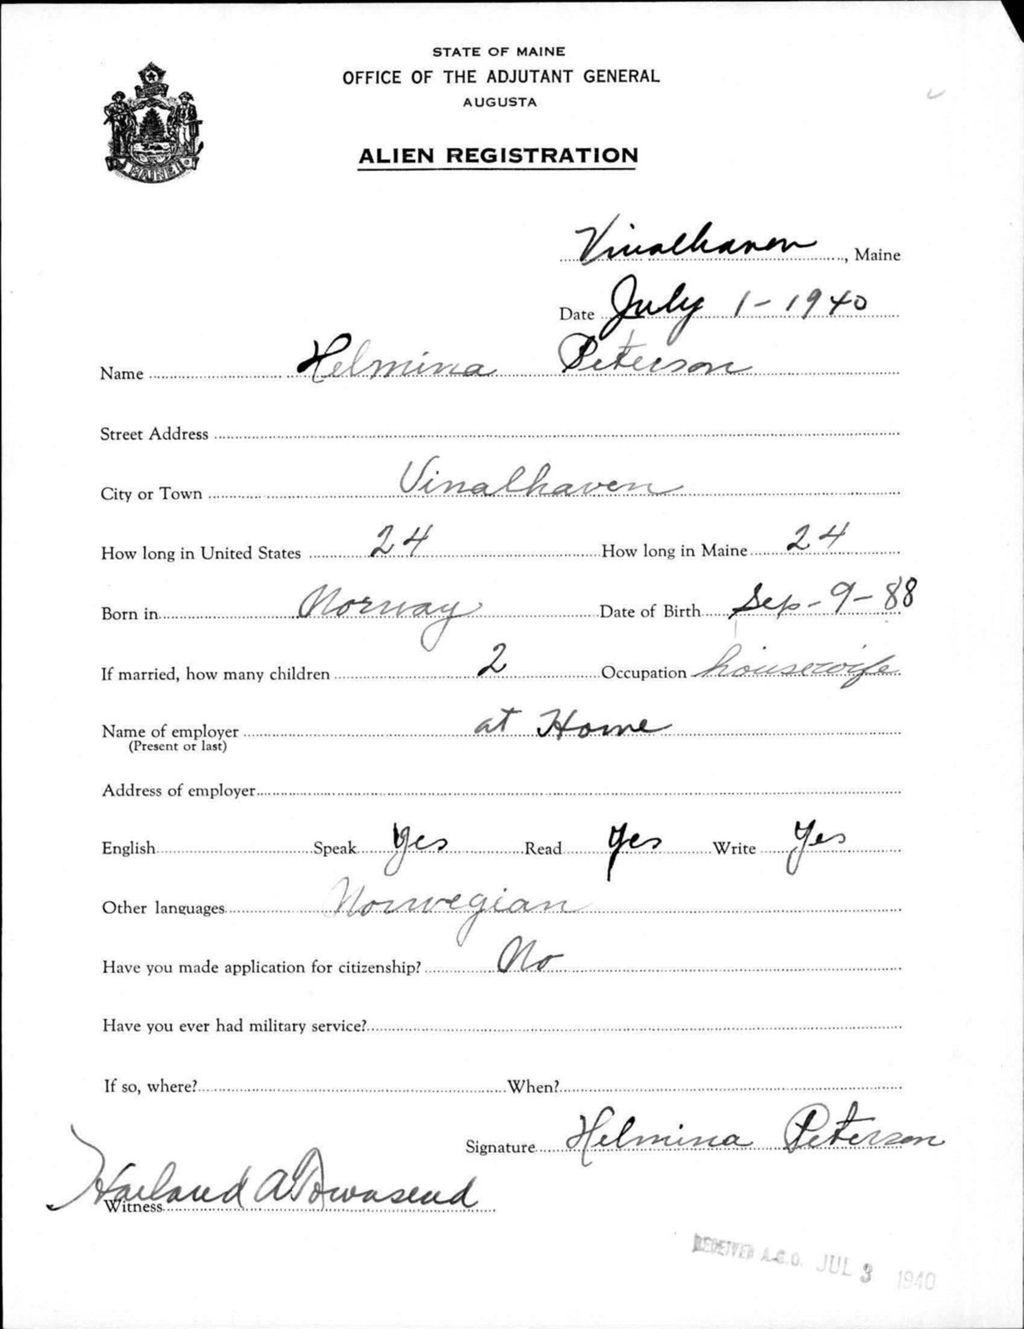 STATE OF MAINE
OFFICE OF THE ADJUTANT GENERAL
AUGUSTA
ALIEN REGISTRATION
MAINE
Vinalhaven, Maine
Date July 1-1940
Name Helmina Peterson
Street Address
City or Town Vinalhaven
How long in United States 24 How long in Maine 24
Born in Norway Date of Birth Sep-9-88
If married, how many children 2 Occupation housewife
Name of employer at Home
(Present or last)
Address of employer
English Speak Yes Read Yes Write Yes
Other languages Norwegian
Have you made application for citizenship? No
Have you ever had military service?
If so, where? When?
Signature Helmina Peterson
Witness Harland A Townsend
RECEIVED A.G.O. JUL 3 1940